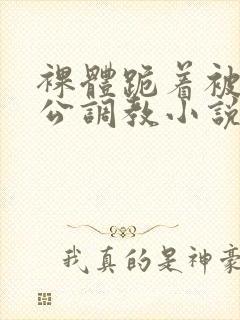 裸體跪着被
公調教小説
我真的是神豪